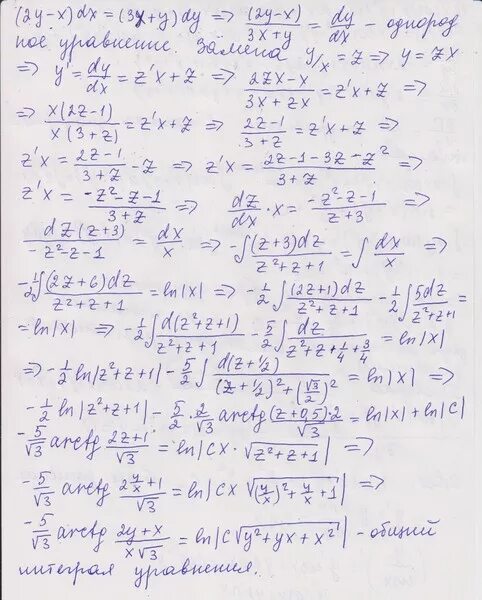 (2y-x)dx = (3x+y)dy ⇒ (2y-x)/(3x+y) = dy/dx - однород
ное уравнение. Замена y/x = z ⇒ y = zx
⇒ y' = dy/dx = z'x + z ⇒ (2zx-x)/(3x+zx) = z'x + z ⇒
⇒ x(2z-1)/x(3+z) = z'x + z ⇒ (2z-1)/(3+z) = z'x + z ⇒
z'x = (2z-1)/(3+z) - z ⇒ z'x = (2z-1-3z-z²)/(3+z) ⇒
z'x = (-z²-z-1)/(3+z) ⇒ dz/dx · x = (-z²-z-1)/(z+3) ⇒
dz(z+3)/(-z²-z-1) = dx/x ⇒ -∫(z+3)dz/(z²+z+1) = ∫dx/x ⇒
-½∫(2z+6)dz/(z²+z+1) = ln|x| ⇒ -½∫(2z+1)dz/(z²+z+1) - ½∫5dz/(z²+z+1) =
= ln|x| ⇒ -½∫d(z²+z+1)/(z²+z+1) - 5/2∫dz/(z²+z+¼+¾) = ln|x|
⇒ -½ln|z²+z+1| - 5/2∫d(z+½)/((z+½)²+(√3/2)²) = ln|x| ⇒
-½ln|z²+z+1| - 5/2 · 2/√3 arctg (z+0,5)·2/√3 = ln|x| + ln|C|
-5/√3 arctg (2z+1)/√3 = ln|Cx · √(z²+z+1)| ⇒
-5/√3 arctg (2y/x+1)/√3 = ln|Cx √((y/x)²+y/x+1)| ⇒
-5/√3 arctg (2y+x)/(x√3) = ln|C√(y²+yx+x²)| - общий
интеграл уравнения.